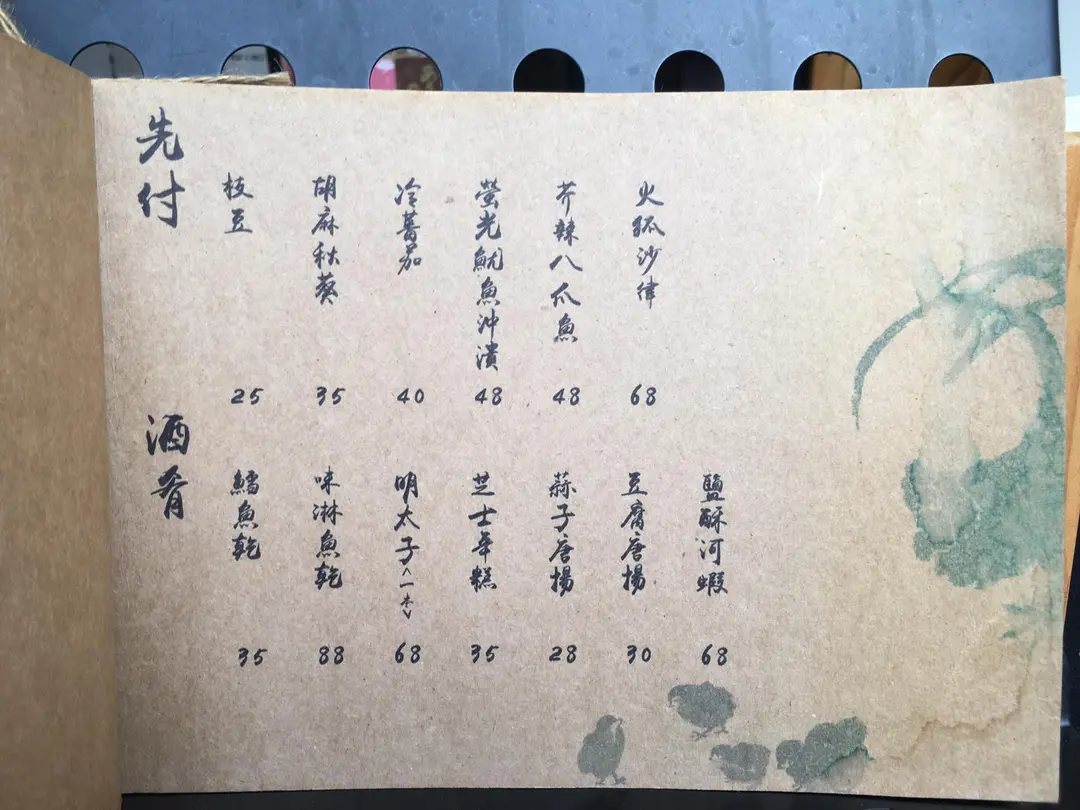 先付
枝豆
25
胡麻秋葵
35
冷蕃茄
40
螢光魷魚沖潰
48
芥辣八爪魚
48
火狐沙律
68
酒肴
鱈魚乾
35
味淋魚乾
88
明太子<一本>
68
芝士年糕
35
蒜子唐揚
28
豆腐唐揚
30
鹽酥河蝦
68